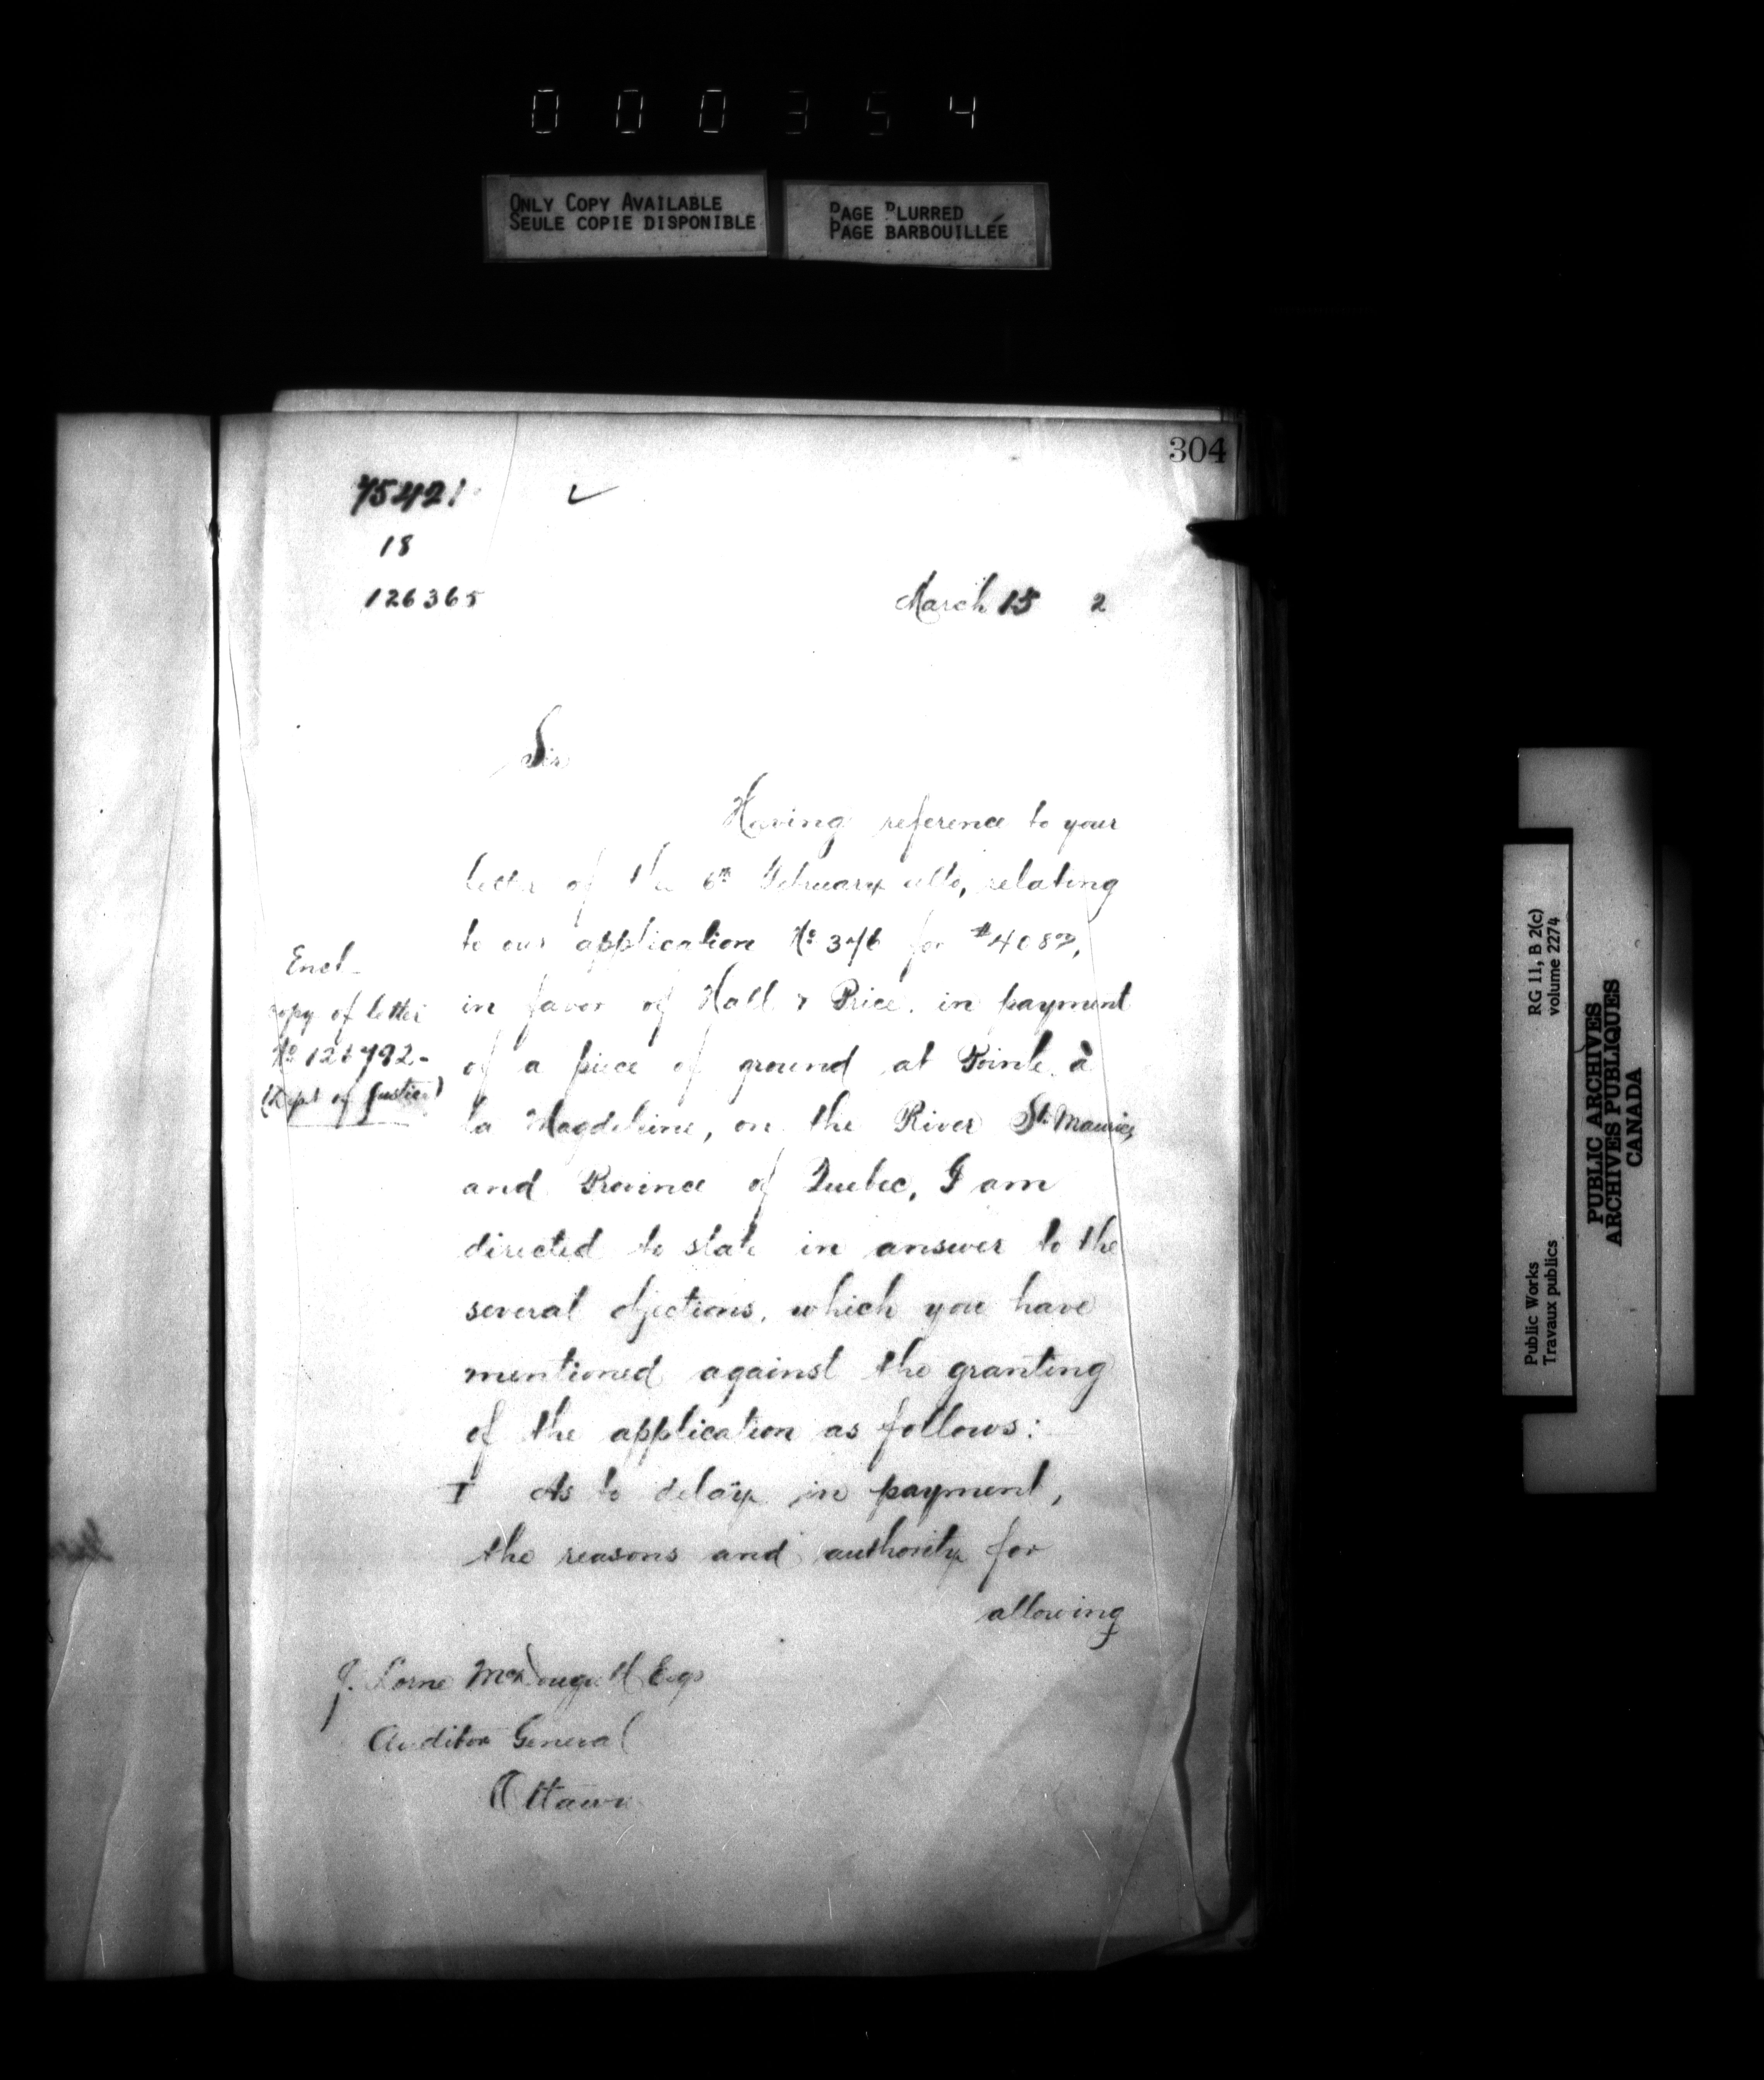 000354
ONLY COPY AVAILABLE
SEULE COPIE DISPONIBLE
PAGE BLURRED
PAGE BARBOUILLÉE
304
75421
18
126365
March 15 2
Sir
Having reference to your
letter of the 6th February ulto, relating
to our application No 346 for
in favor of Hall & Price. in payment
of a piece of ground at Pointe à
la Magdeleine, on the River St Maurice,
and Province of Quebec, I am
directed to state in answer to the
several objections, which you have
mentioned against the granting
of the application as follows:
I As to delay in payment,
the reasons and authority for
allowing
Encl.
copy of letter
No
(Dept of Justice)
J. Lorne McDougall Esqr
Auditor General
Ottawa
Public Works
Travaux publics
RG 11, B 2(c)
volume 2274
PUBLIC ARCHIVES
ARCHIVES PUBLIQUES
CANADA